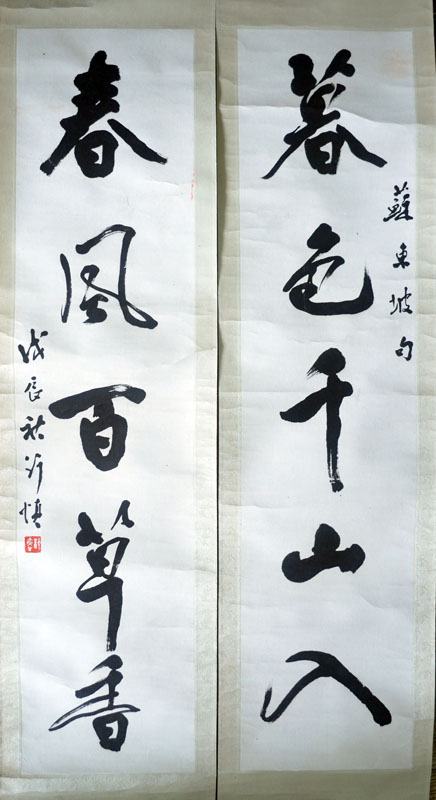 暮色千山入
蘇東坡句
春風百草香
戊辰秋許慎